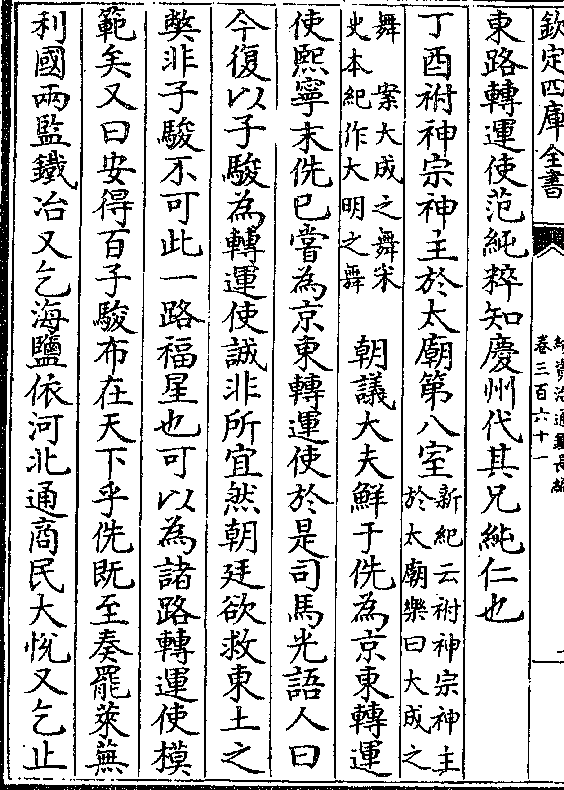 欽定四庫全書
續資治通鑑長編
卷三百六十一
東路轉運使范純粹知慶州代其兄純仁也
丁酉祔神宗神主於太廟第八室
新紀云祔神宗神主
於太廟樂曰大成之
舞　案大成之舞宋
史本紀作大明之舞
朝議大夫鮮于侁為京東轉運
使熙寧末侁已嘗為京東轉運使於是司馬光語人曰
今復以子駿為轉運使誠非所宜然朝廷欲救東土之
獘非子駿不可此一路福星也可以為諸路轉運使模
範矣又曰安得百子駿布在天下乎侁既至奏罷萊蕪
利國兩監鐵冶又乞海鹽依河北通商民大悅又乞止